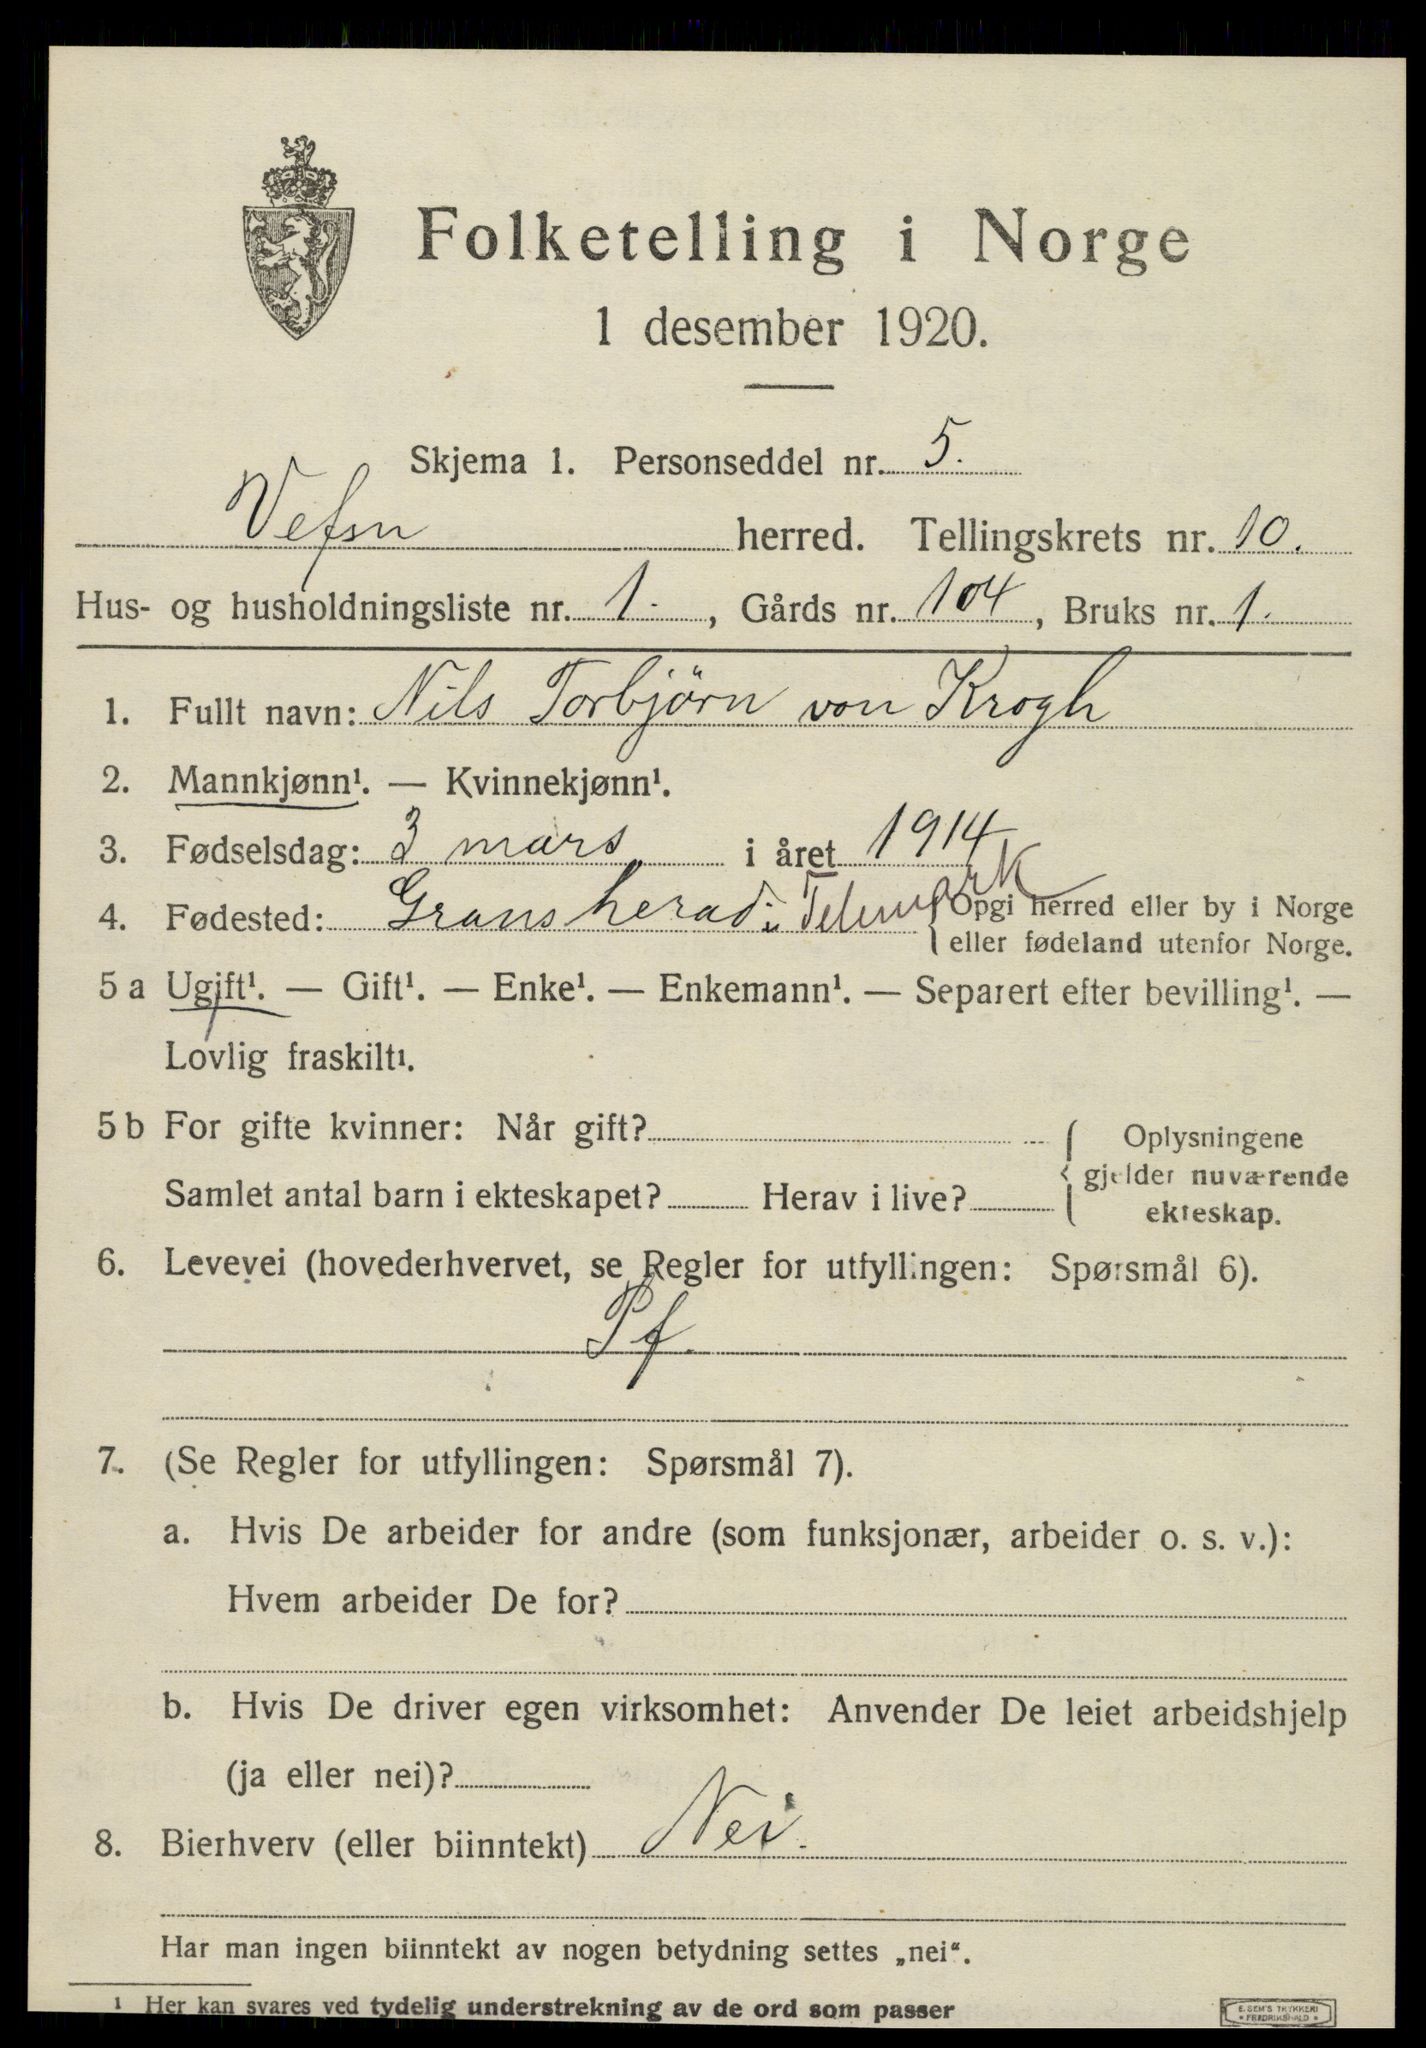 Folketelling i Norge
1 desember 1920.
Skjema 1. Personseddel nr. 5.
Vefsn herred. Tellingskrets nr. 10.
Hus- og husholdningsliste nr. 1., Gårds nr. 104, Bruks nr. 1.
1. Fullt navn: Nils Torbjörn von Krogh
2. Mannkjønn¹. — Kvinnekjønn¹.
3. Fødselsdag: 3 mars i året 1914
4. Fødested: Gransherad i Telemark { Opgi herred eller by i Norge
eller fødeland utenfor Norge.
5 a Ugift¹. — Gift¹. — Enke¹. — Enkemann¹. — Separert efter bevilling¹. —
Lovlig fraskilt¹.
5 b For gifte kvinner: Når gift?
Samlet antal barn i ekteskapet? Herav i live?
{ Oplysningene
gjelder nuværende
ekteskap.
6. Levevei (hovederhvervet, se Regler for utfyllingen: Spørsmål 6).
Pf.
7. (Se Regler for utfyllingen: Spørsmål 7).
a. Hvis De arbeider for andre (som funksjonær, arbeider o. s. v.):
Hvem arbeider De for?
b. Hvis De driver egen virksomhet: Anvender De leiet arbeidshjelp
(ja eller nei)?
8. Bierhverv (eller biinntekt) Nei.
Har man ingen biinntekt av nogen betydning settes „nei“.
¹ Her kan svares ved tydelig understrekning av de ord som passer
E. SEM'S TRYKKERI
• FREDRIKSHALD •